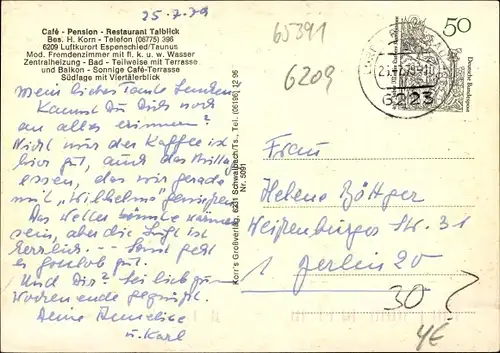 25.7.79
Café - Pension - Restaurant Talblick
Bes. H. Korn - Telefon (06775) 396
6209 Luftkurort Espenschied/Taunus
Mod. Fremdenzimmer mit fl. k. u. w. Wasser
Zentralheizung - Bad - Teilweise mit Terrasse
und Balkon - Sonnige Café-Terrasse
Südlage mit Viertälerblick
65391
6209
50
Deutsche Bundespost
6223
Mein liebes Tante
Kannst Du Dich noch
an alles erinnern?
Nicht nur der Kaffee ist
hier gut, auch das Mittag
essen, das wir gerade
mit „Wilhelms" genießen.
Das Wetter könnte wärmer
sein, aber die Luft ist
herrlich. -- Sonst geht
es gottlob gut.
Und Dir? Sei lieb zum
Wochenende gegrüßt.
Deine Anneliese
u. Karl
Korr's Großverlag, 6231 Schwalbach/Ts., Tel. (06196) 12 96
Nr. 5091
Frau
Helene Böttger
Weißenburger Str. 31
1 Berlin 20
30
4€